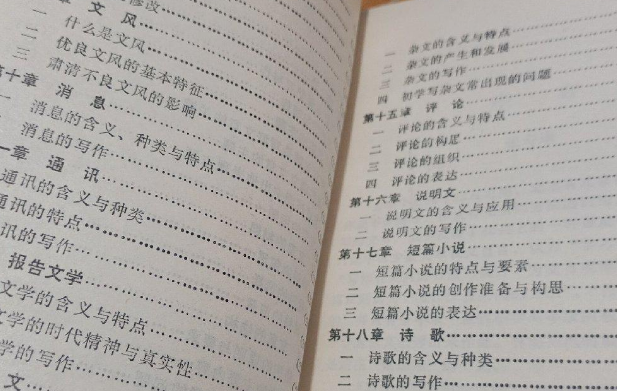 修改
文风
一 什么是文风
二 优良文风的基本特征
三 肃清不良文风的影响
第十章 消息
一 消息的含义、种类与特点
消息的写作
一章 通讯
通讯的含义与种类
通讯的特点
讯的写作
报告文学
文学的含义与特点
文学的时代精神与真实性
学的写作
文
一 杂文的含义与特点
二 杂文的产生和发展
三 杂文的写作
四 初学写杂文常出现的问题
第十五章 评论
一 评论的含义与特点
二 评论的构思
三 评论的组织
四 评论的表达
第十六章 说明文
一 说明文的含义与应用
二 说明文的写作
第十七章 短篇小说
一 短篇小说的特点与要素
二 短篇小说的创作准备与构思
三 短篇小说的表达
第十八章 诗歌
一 诗歌的含义与种类
二 诗歌的写作